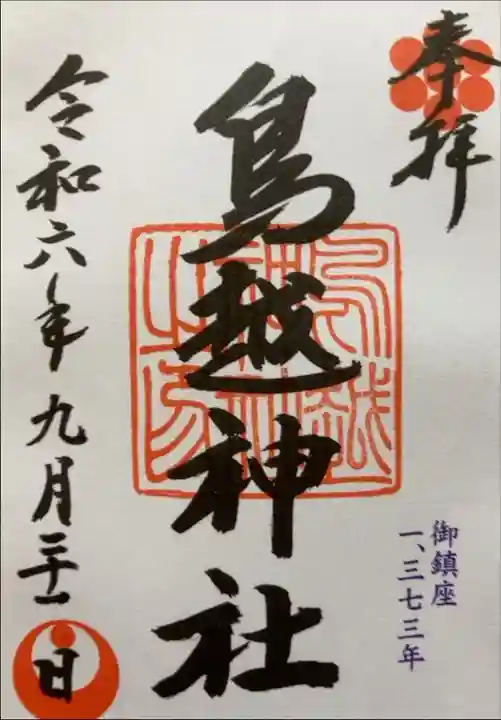 奉拝
鳥越神社
御鎮座
一、三七三年
令和六年九月二十一日